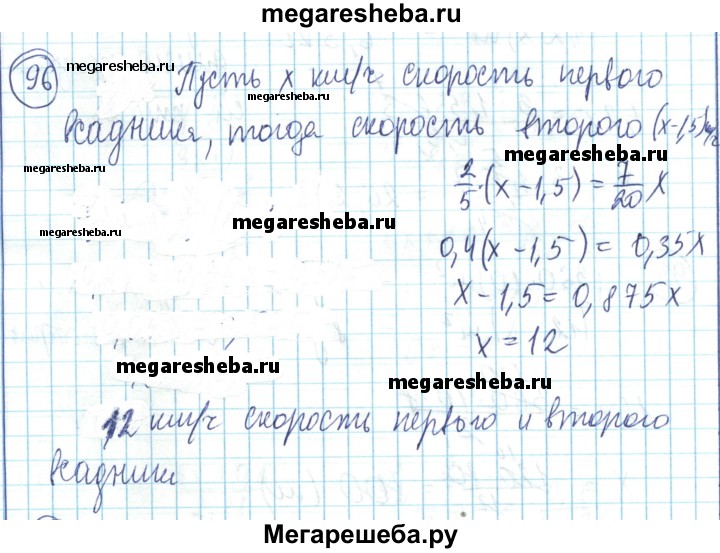 megaresheba.ru
96 megaresheba.ru Пусть x км/ч скорость первого
megaresheba.ru
всадника, тогда скорость второго (x-1,5) км/ч
megaresheba.ru
megaresheba.ru
2/5 · (x - 1,5) = 7/20 x
megaresheba.ru
megaresheba.ru
0,4(x - 1,5) = 0,35x
x - 1,5 = 0,875x
x = 12
megaresheba.ru
megaresheba.ru
12 км/ч скорость первого и второго
всадника megaresheba.ru
Мегарешеба.ру